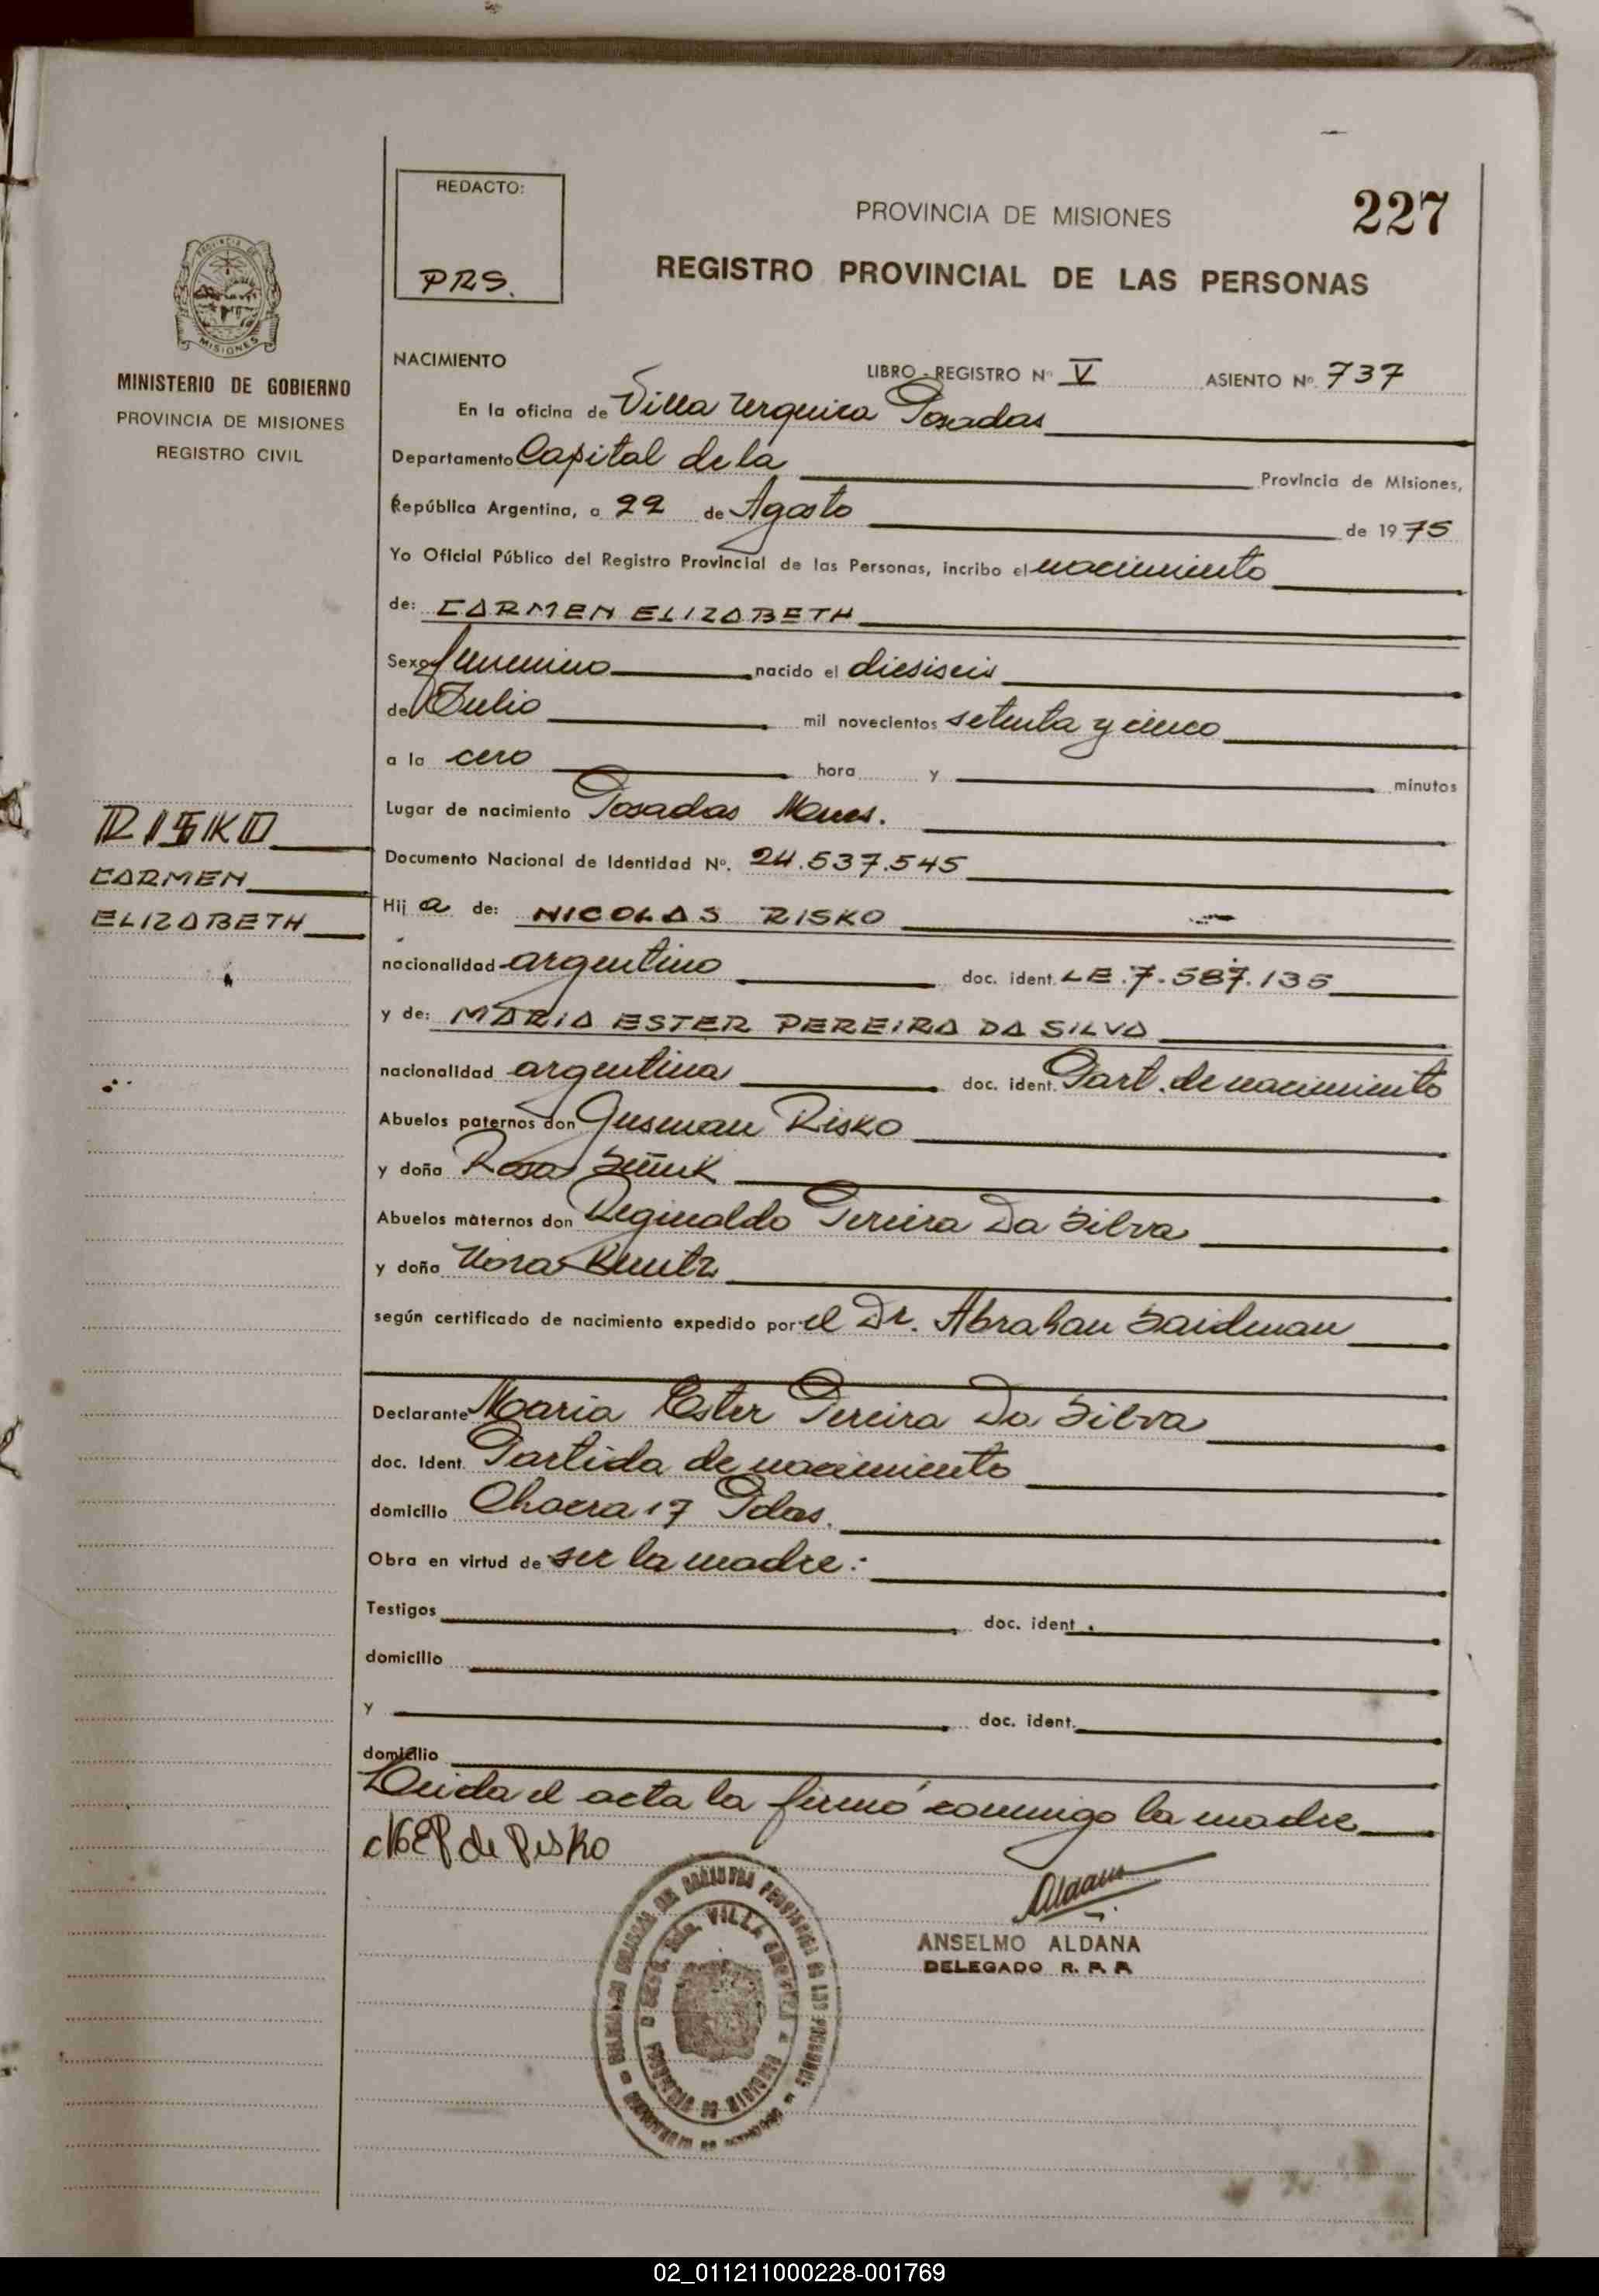 REDACTO:
PRS.
PROVINCIA DE MISIONES
227
REGISTRO PROVINCIAL DE LAS PERSONAS
MISIONES
MINISTERIO DE GOBIERNO
PROVINCIA DE MISIONES
REGISTRO CIVIL
NACIMIENTO LIBRO - REGISTRO Nº V ASIENTO Nº 737
En la oficina de Villa Urquiza Posadas
Departamento Capital de la Provincia de Misiones,
República Argentina, a 22 de Agosto de 1975
Yo Oficial Público del Registro Provincial de las Personas, incribo el nacimiento
de: CARMEN ELIZABETH
Sexo femenino nacido el diesiseis
de Julio mil novecientos setenta y cinco
a la cero hora y minutos
Lugar de nacimiento Posadas Mnes.
RISKO
CARMEN
ELIZABETH
Documento Nacional de Identidad Nº. 24.537.545
Hij a de: NICOLAS RISKO
nacionalidad argentino doc. ident. LE.7.587.135
y de: MARIA ESTER PEREIRA DA SILVA
nacionalidad argentina doc. ident. Part. de nacimiento
Abuelos paternos don Gusman Risko
y doña Rosa
Abuelos maternos don Reginaldo Pereira Da Silva
y doña
según certificado de nacimiento expedido por el Dr. Abrahan Saidman
Declarante Maria Ester Pereira Da Silva
doc. Ident. Partida de nacimiento
domicilio Chacra 17 Pdas.
Obra en virtud de ser la madre:
Testigos doc. ident.
domicilio
y doc. ident.
domicilio
Leida el acta la firmó conmigo la madre
MEP de Risko
Aldana
ANSELMO ALDANA
DELEGADO R. P. P.
02_011211000228-001769